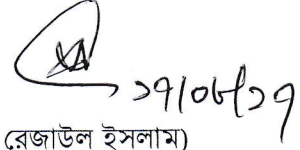 ১৭/০৮/১৭
রেজাউল ইসলাম)